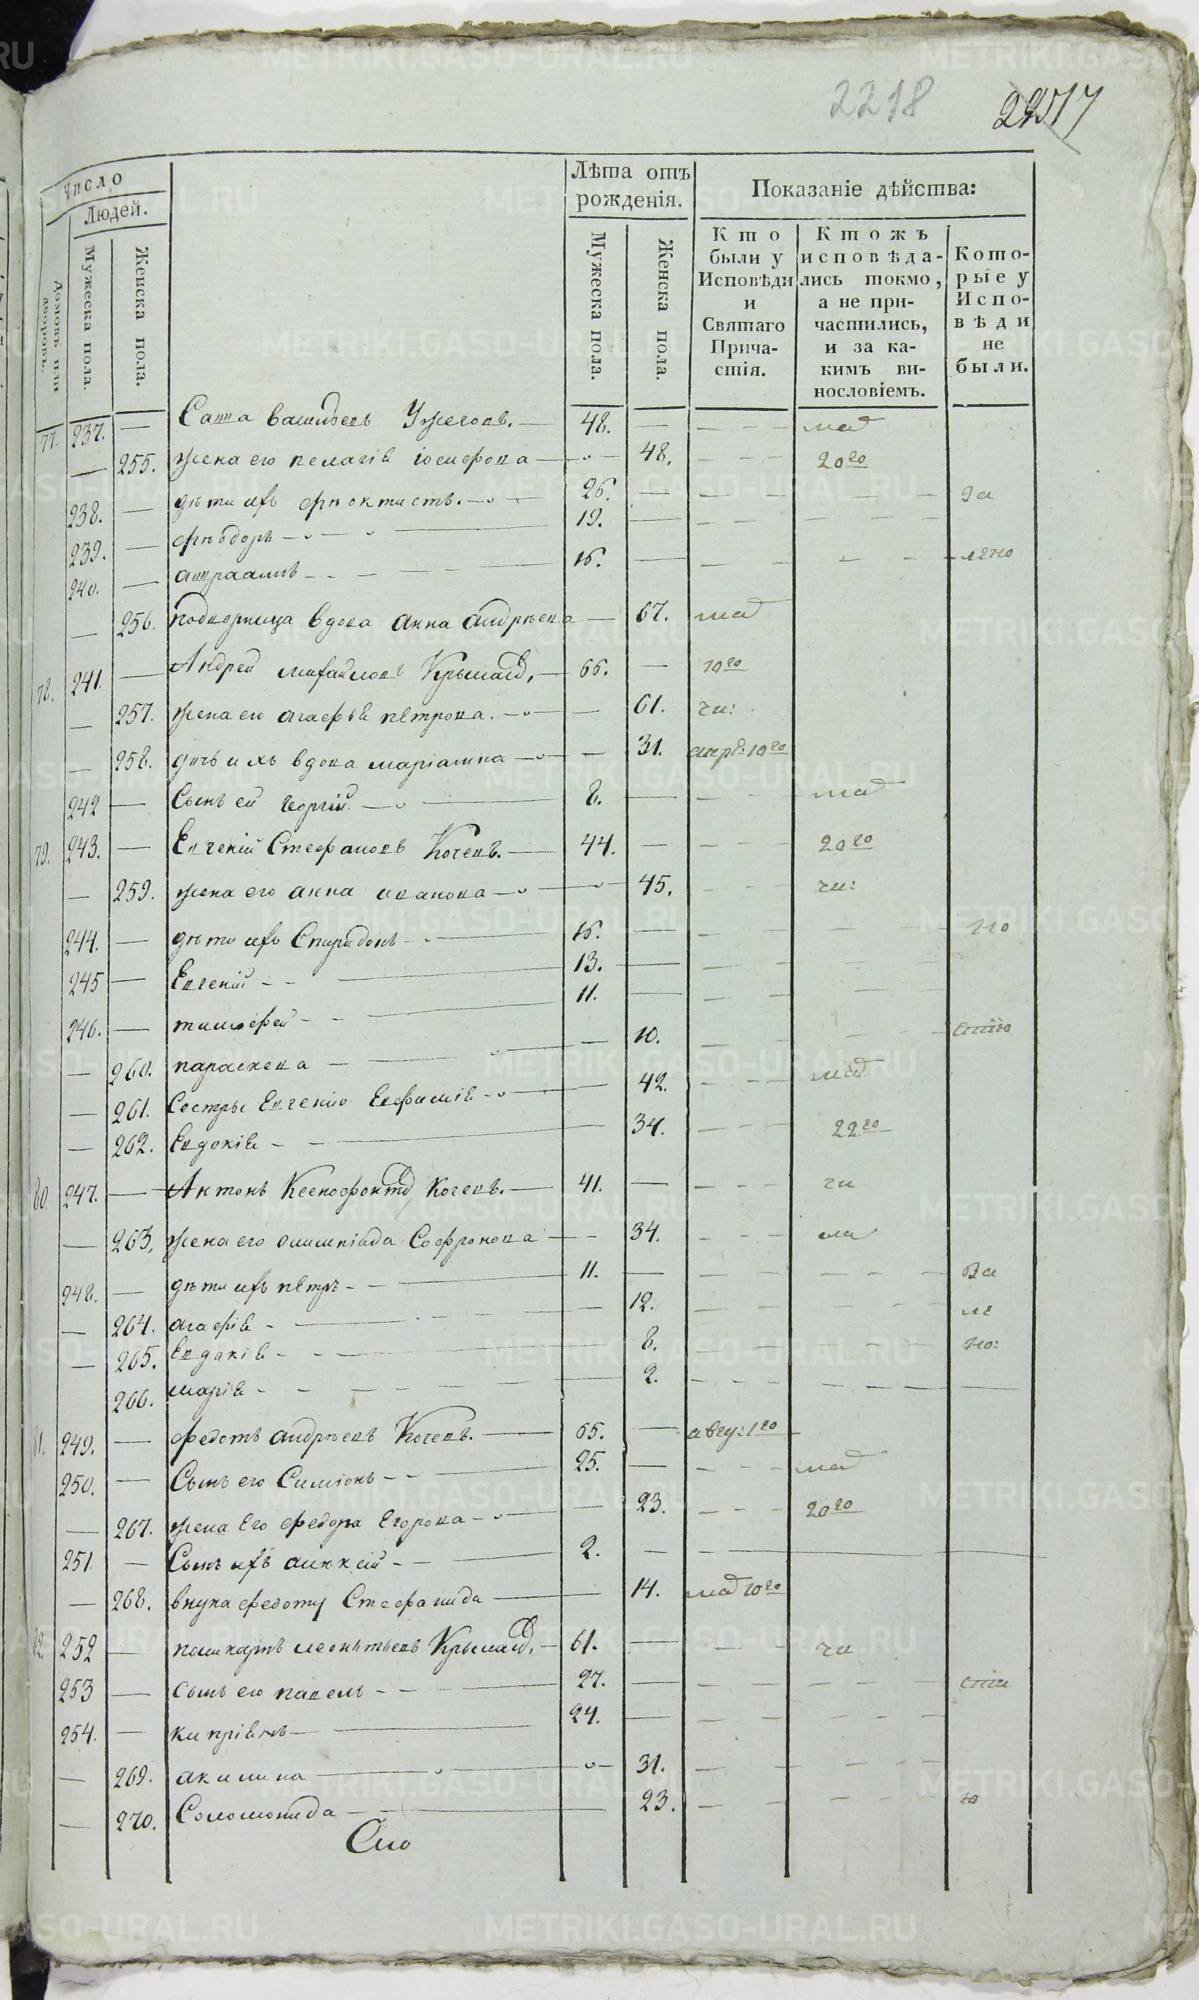 2218
22517
Число
Людей.
Лѣта отъ рожденія.
Показаніе дѣйства:
Домовъ или дворовъ.
Мужеска пола.
Женска пола.
Мужеска пола.
Женска пола.
Кто были у Исповѣди и Святаго Причастія.
Ктожъ исповѣдались токмо, а не причастились, и за какимъ винословіемъ.
Которые у Исповѣди не были.
77. 237. — Савва Васильевъ Ужеговъ. — 48. — маѧ
— 255. жена его пелагіѧ іосифова — 48. 20го
238. — дѣти ихъ фѣоктистъ. 26. — за
239. — фѣодоръ — 19. —
240. — авраамъ 15. — лѣно
— 256. подворница вдова анна андрѣева — 67. маѧ
78. 241. — Андрей михайловъ Крымовъ, — 66. — 10го
— 257. жена его агафьѧ пѣтрова. — 61. чи:
— 258. дочь ихъ вдова маріамна — 31. апрѣ: 10го
242 — Сынъ ей георгій — 8. — маѧ
79. 243. — Евгеній Стефановъ Кочевъ. — 44. — 20го
— 259. жена его анна иванова — 45. чи:
244. — дѣти ихъ Спиридонъ 15. — но
245 — Евгеній 13. —
246. — тимофей 11. — стію
— 260. параскева — 10.
— 261. Сестры Евгенію Евфиміѧ — 42. маѧ
— 262. Евдокіѧ — 34. 22го
80. 247. — Антонъ Ксенофонтовъ Кочевъ. — 41. — чи
— 263. жена его олимпіада Софронова — 34. маѧ
248. — дѣти ихъ пѣтръ 11. — За
— 264. агафіѧ — 12. лѣ
— 265. Евдокіѧ — 8. но:
266. маріѧ — 2.
81. 249. — федотъ андрѣевъ Кочевъ. — 65. — авгу: 1го
250. — Сынъ его Симіонъ 25. — маѧ
— 267. жена Его федора Егорова — 23. 20го
251 — Сынъ ихъ алѣксій 2. —
— 268. внука федоту Стефанида — 14. маѧ 10го
82. 252 — поликарпъ леонътьевъ Крымовъ, 61. — чи
253 — сынъ его павелъ 27. — сти
254. — кипріѧнъ — 24. —
— 269. акилина — 31.
— 270. Соломонида — 23. ю
METRIKI.GASO-URAL.RU